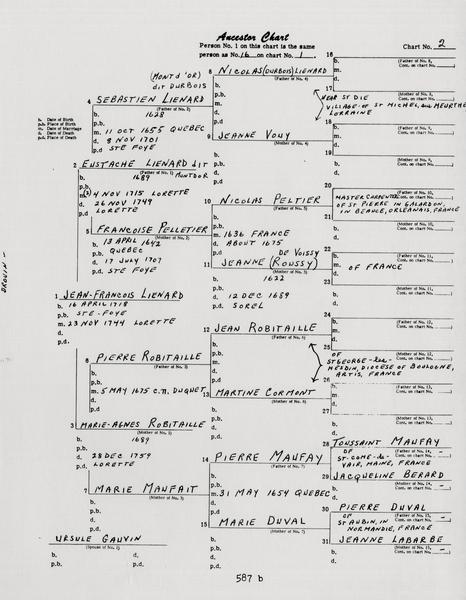 Ancestor Chart
Person No. 1 on this chart is the same
person as No. 16 on chart No. 1.
Chart No. 2
b. Date of Birth
p.b. Place of Birth
m. Date of Marriage
d. Date of Death
p.d. Place of Death
DROUIN -
1 JEAN-FRANCOIS LIENARD
b. 16 APRIL 1718
p.b. STE-FOYE
m. 23 NOV 1744 LORETTE
d.
p.d.
2 EUSTACHE LIENARD dit
(Father of No. 1) MONTDOR
b. 1689
p.b.
m. 4 NOV 1715 LORETTE
d. 26 NOV 1749
p.d. LORETTE
3 MARIE-AGNES ROBITAILLE
(Mother of No. 1)
b. 1689
p.b.
d. 28 DEC 1759
p.d. LORETTE
(MONT d'OR)
dit DURBOIS
4 SEBASTIEN LIENARD
(Father of No. 2)
b. 1628
p.b.
m. 11 OCT 1655 QUEBEC
d. 8 NOV 1701
p.d STE FOYE
5 FRANCOISE PELLETIER
(Mother of No. 2)
b. 13 APRIL 1642
p.b. QUEBEC
d. 17 JULY 1707
p.d. STE FOYE
6 PIERRE ROBITAILLE
(Father of No. 3)
b.
p.b.
m. 5 MAY 1675 C.M. DUQUET
d.
p.d.
7 MARIE MAUFAIT
(Mother of No. 3)
b.
p.b.
d.
p.d.
8 NICOLAS (DURBOIS) LIENARD
(Father of No. 4)
b.
p.b.
m.
d.
p.d.
9 JEANNE VOUY
(Mother of No. 4)
b.
p.b.
d.
p.d.
10 NICOLAS PELTIER
(Father of No. 5)
b.
p.b.
m. 1636 FRANCE
d. ABOUT 1675
p.d. DE VOISSY
11 JEANNE (ROUSSY)
(Mother of No. 5)
b. 1622
p.b.
d. 12 DEC 1689
p.d. SOREL
12 JEAN ROBITAILLE
(Father of No. 6)
b.
p.b.
m.
d.
p.d.
13 MARTINE CORMONT
(Mother of No. 6)
b.
p.b.
d.
p.d.
14 PIERRE MAUFAY
(Father of No. 7)
b.
p.b.
m. 31 MAY 1654 QUEBEC
d.
p.d.
15 MARIE DUVAL
(Mother of No. 7)
b.
p.b.
d.
p.d.
16
(Father of No. 8,
Cont. on chart No. )
NEAR ST DIE
17
(Mother of No. 8,
Cont. on chart No. )
VILLAGE OF ST MICHEL, sur MEURTHE
LORRAINE
18
(Father of No. 9,
Cont. on chart No. )
19
(Mother of No. 9,
Cont. on chart No. )
20
(Father of No. 10,
Cont. on chart No. )
MASTER CARPENTER
OF ST PIERRE IN GALARDON,
IN BEAUCE, ORLEANAIS, FRANCE
21
(Mother of No. 10,
Cont. on chart No. )
22
(Father of No. 11,
Cont. on chart No. )
m. OF FRANCE
23
(Mother of No. 11,
Cont. on chart No. )
24
(Father of No. 12,
Cont. on chart No. )
OF
25
(Mother of No. 12,
Cont. on chart No. )
DIOCESE OF BOULOGNE,
ARTIS, FRANCE
26
(Father of No. 13,
Cont. on chart No. )
27
(Mother of No. 13,
Cont. on chart No. )
28 TOUSSAINT MAUFAY
(Father of No. 14,
Cont. on chart No. )
OF
ST-COME-de-
VAIR, MAINE, FRANCE
29 JACQUELINE BERARD
(Mother of No. 14,
Cont. on chart No. )
30 PIERRE DUVAL
(Father of No. 15,
Cont. on chart No. )
OF
ST AUBIN, IN
NORMANDIE, FRANCE
31 JEANNE LABARBE
(Mother of No. 15,
Cont. on chart No. )
URSULE GAUVIN
(Spouse of No. 1)
b.
p.b.
d.
p.d.
587 b